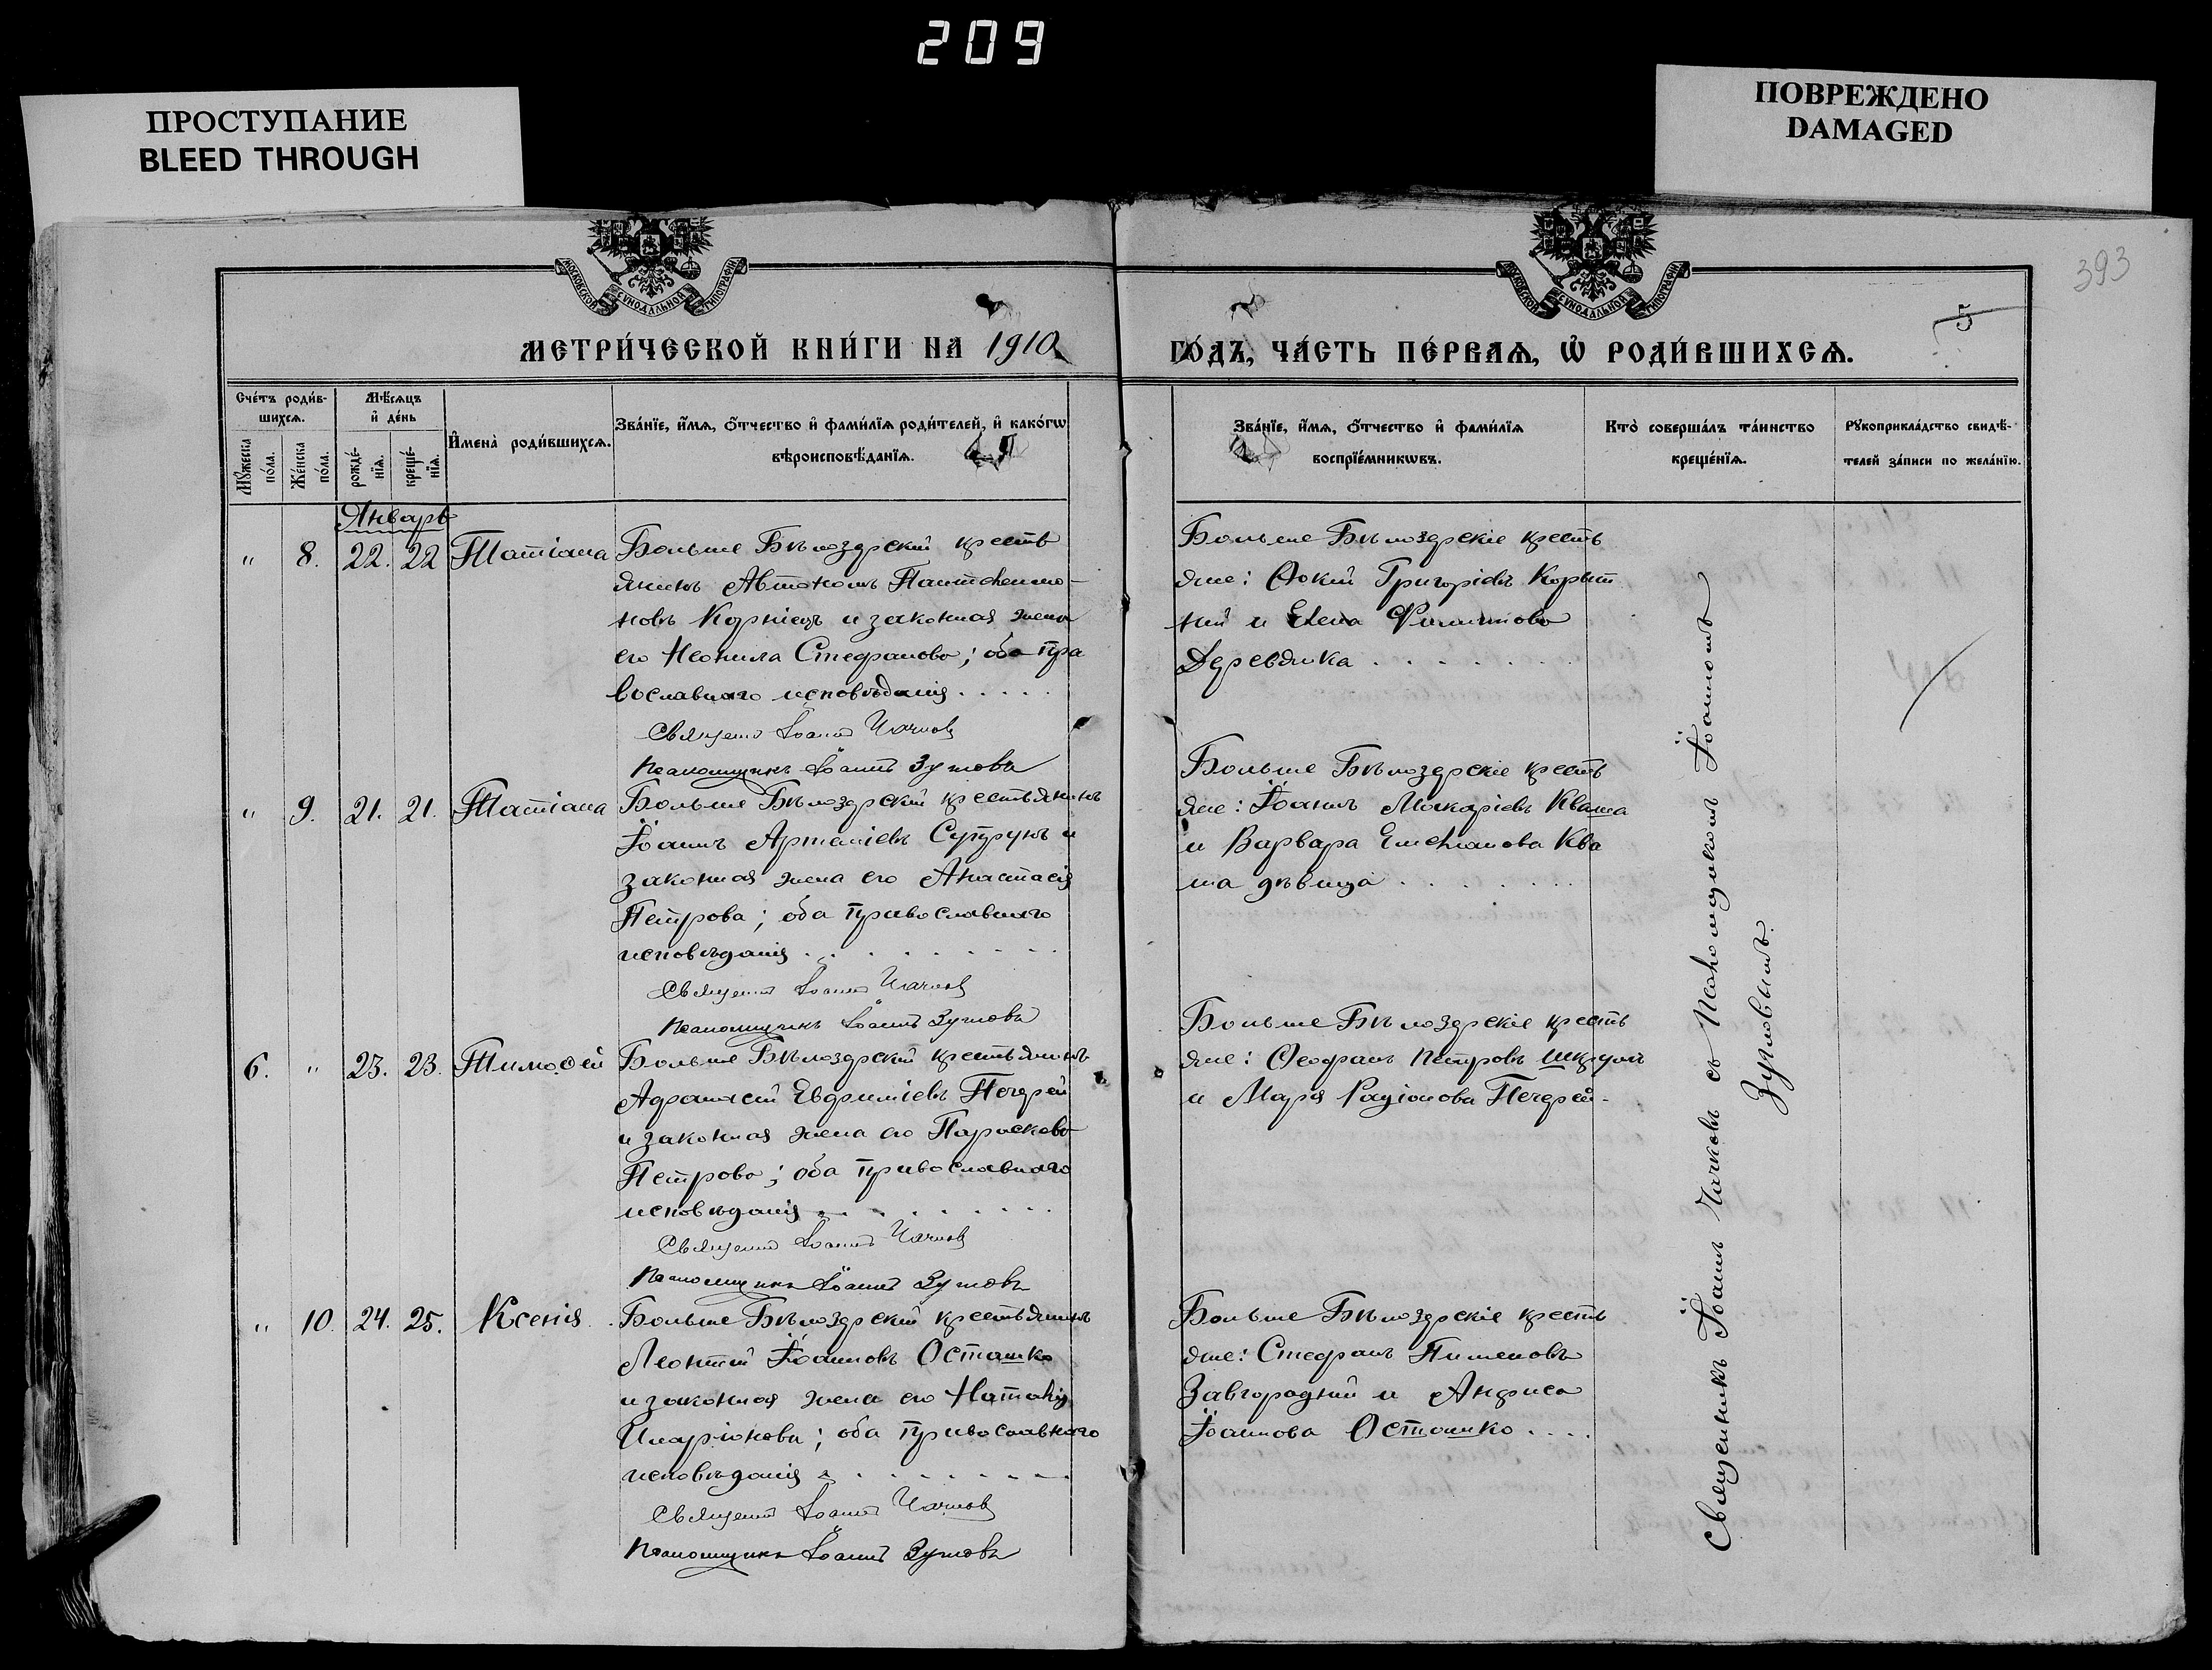 209
ПРОСТУПАНИЕ
BLEED THROUGH
ПОВРЕЖДЕНО
DAMAGED
393
5
МОСКОВСКОЙ СУНОДАЛЬНОЙ ТИПОГРАФІИ
МОСКОВСКОЙ СУНОДАЛЬНОЙ ТИПОГРАФІИ
МЕТРИ́ЧЕСКОЙ КНИ́ГИ НА 1910
ГО́ДЪ, ЧА́СТЬ ПЕ́РВАѦ, Ѡ РОДИ́ВШИХСѦ.
Сче́тъ роди́в-
шихсѧ.
Мꙋ́жеска
по́ла.
Же́нска
по́ла.
Мѣ́сѧцъ
и҆ де́нь
рожде́-
нїѧ.
креще́-
нїѧ.
И҆мена̀ роди́вшихсѧ.
Зва́нїе, и҆́мѧ, ѻ҆́тчество и҆ фами́лїѧ роди́телей, и҆ како́гѡ
вѣроисповѣ́данїѧ.
Зва́нїе, и҆́мѧ, ѻ҆́тчество и҆ фами́лїѧ
воспрїе́мникѡвъ.
Кто̀ соверша́лъ та́инство
креще́нїѧ.
Рꙋкоприкла́дство свидѣ́-
телей за́писи по жела́нїю.
Январь
" 8. 22. 22 Татіана
Больше Бѣлозерскій кресть
янинъ Автономъ Пантелимо-
новъ Корніецъ и законная жена
его Неонила Стефанова; оба пра
вославнаго исповѣданія . . . . .
Священ Іоаннъ Чачковъ
Псаломщикъ Іоаннъ Зуновъ
Больше Бѣлозерскіе кресть
яне: Григоріевъ Корыт
ній и Елена Филиппова
Деревянка . . . . . . .
" 9. 21. 21. Татіана
Больше Бѣлозерскій крестьянинъ
Іоаннъ Артеміевъ Супрунъ и
законная жена его Анастасія
Петрова; оба православнаго
исповѣданія . . . . . . . .
Священ Іоаннъ Чачковъ
Псаломщикъ Іоаннъ Зуновъ
Больше Бѣлозерскіе кресть
яне: Іоаннъ Макаріевъ Кваша
и Варвара Емельянова Ква
ша дѣвица . . . . . . .
6. " 23. 23. Тимоѳей
Больше Бѣлозерскій крестьянинъ
Афанасій Евфиміевъ Печерей
и законная жена его Параскева
Петрова; оба православнаго
исповѣданія . . . . . . . .
Священ Іоаннъ Чачковъ
Псаломщикъ Іоаннъ Зуновъ
Больше Бѣлозерскіе кресть
яне: Ѳеофанъ Петровъ
и Марія Радіонова Печерей.
" 10. 24. 25. Ксенія
Больше Бѣлозерскій крестьянинъ
Леонтій Іоанновъ Осташко
и законная жена его Наталія
Иларіонова; оба православнаго
исповѣданія . . . . . . . .
Священ Іоаннъ Чачковъ
Псаломщикъ Іоаннъ Зуновъ
Больше Бѣлозерскіе кресть
яне: Стефанъ Пименовъ
Завгородній и Анфиса
Іоаннова Осташко . . . .
Священникъ Іоаннъ Чачковъ съ Псаломщикомъ Іоанномъ
Зуновымъ.